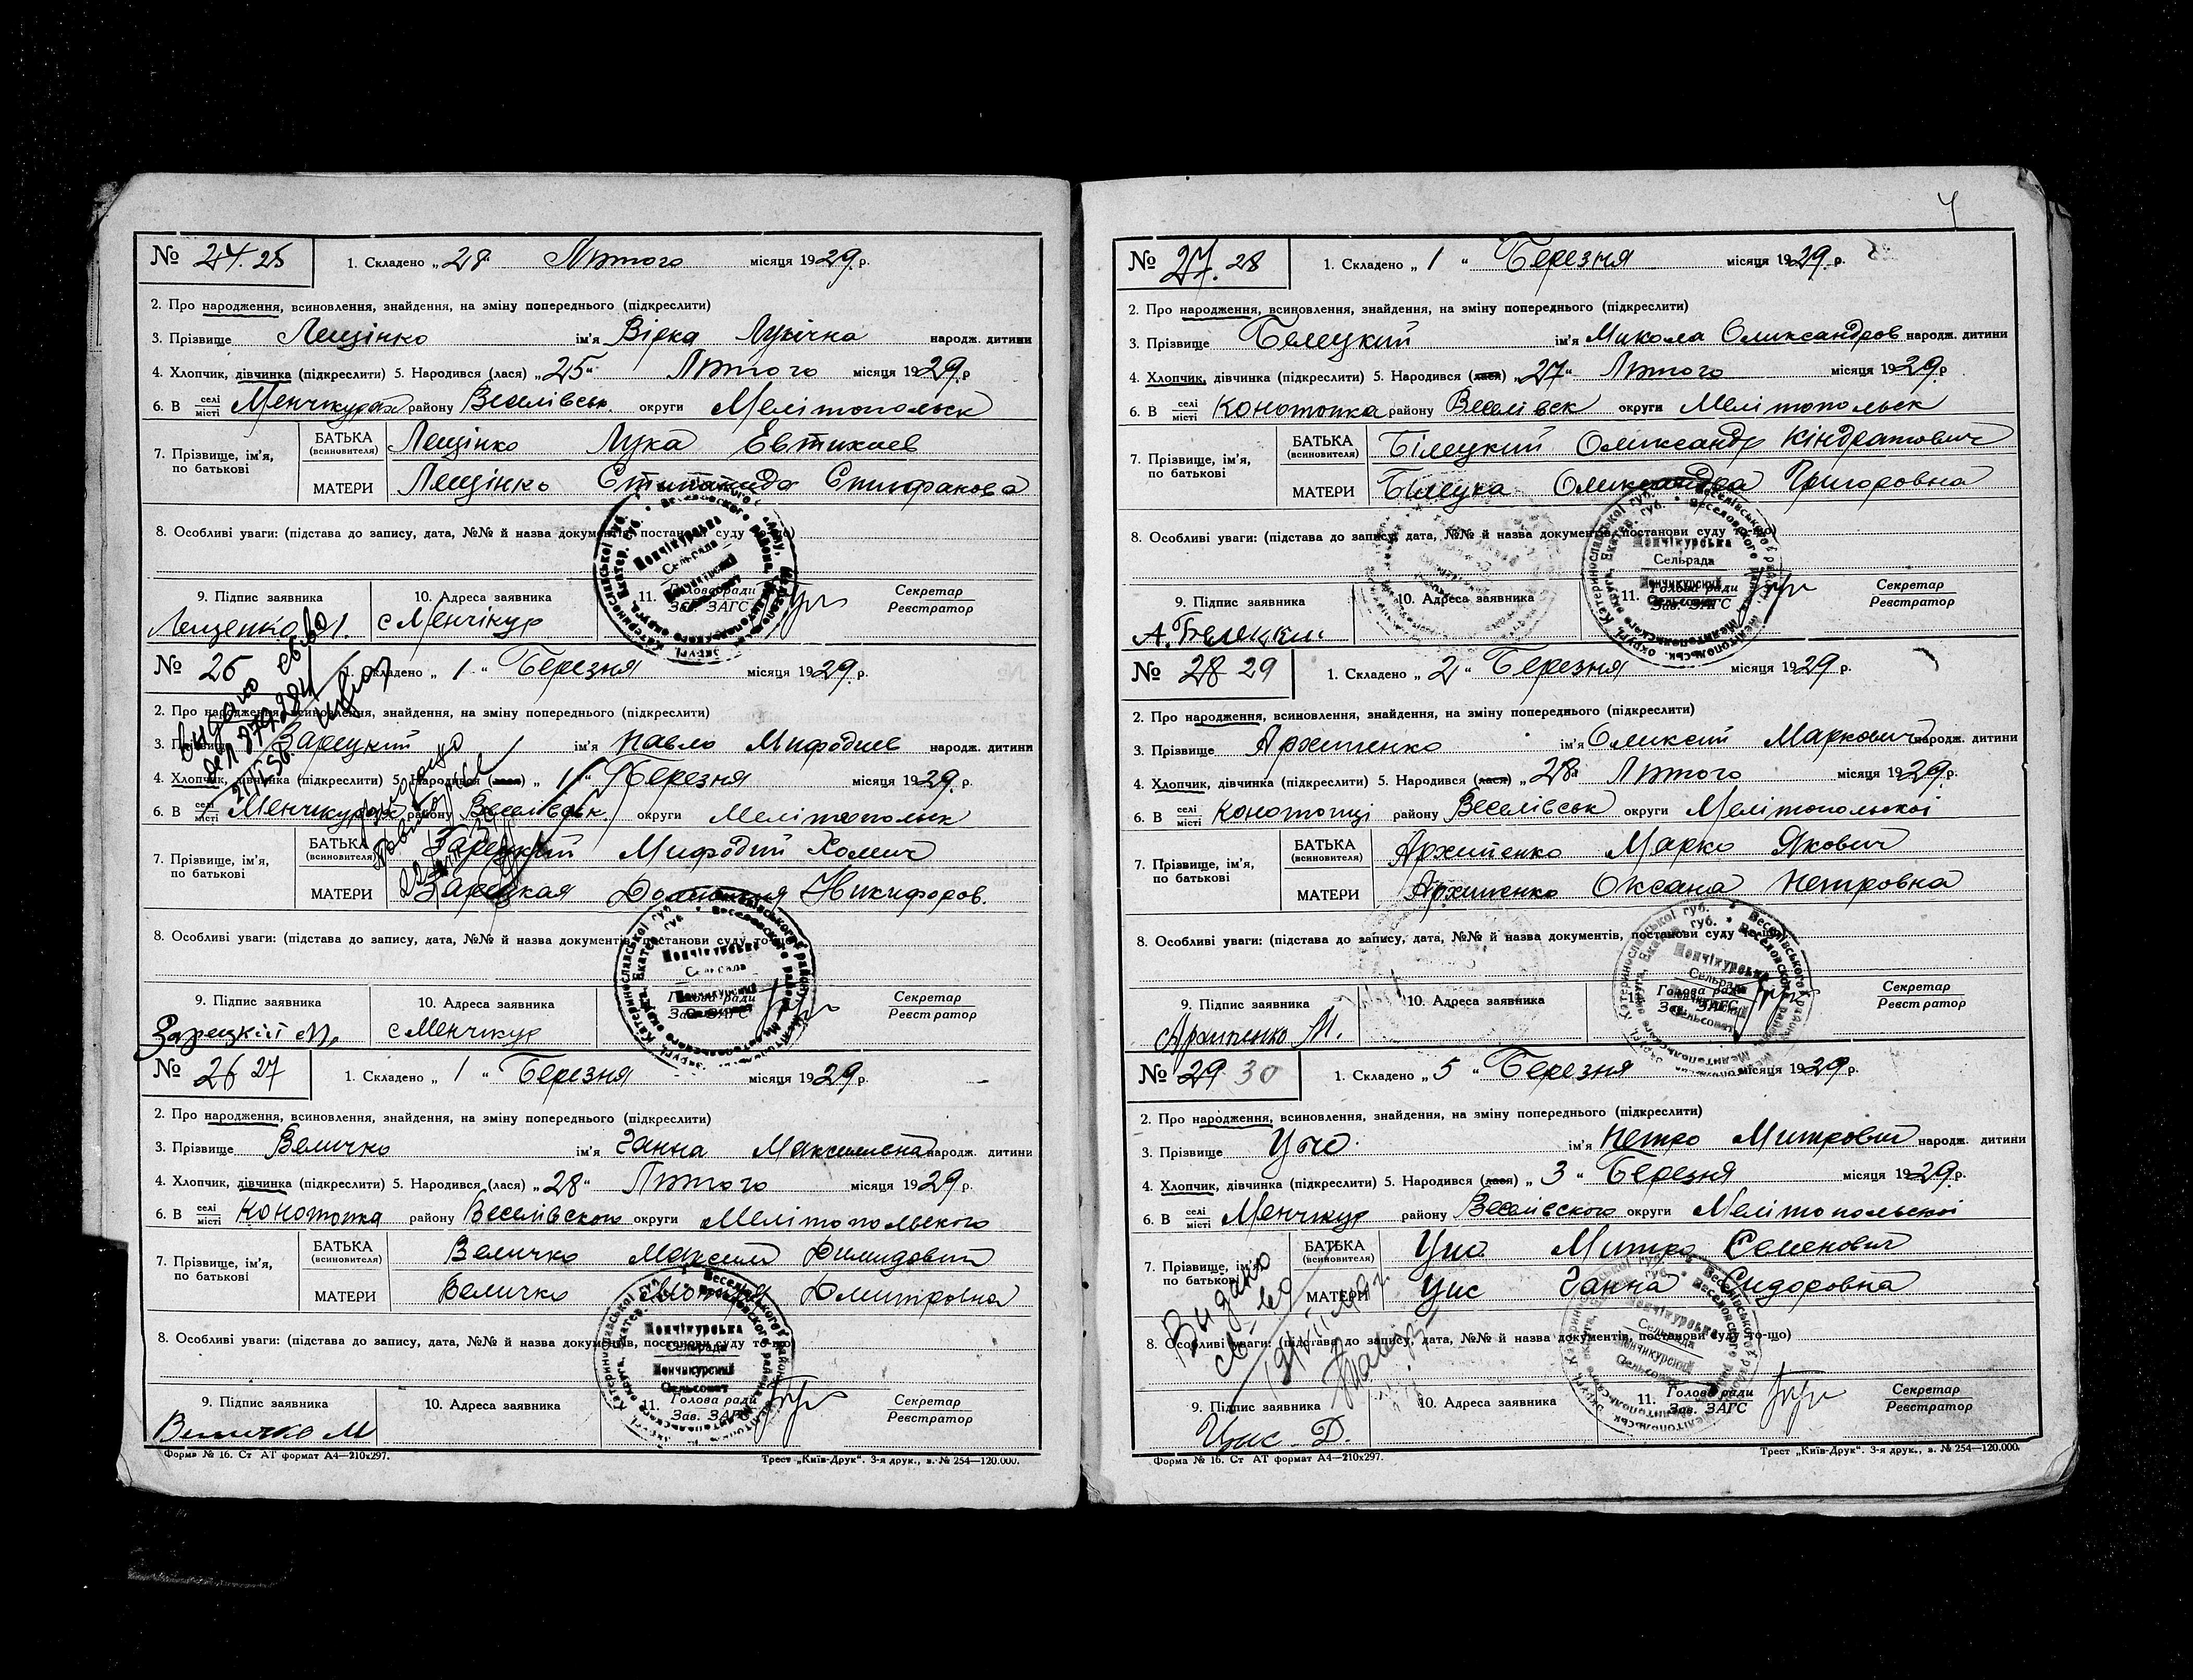 № 24. 25 1. Складено „ 28 Лютого місяця 1929. р.
2. Про народження, всиновлення, знайдення, на зміну попереднього (підкреслити)
3. Прізвище Лещінко ім'я Вірка Лукічна народж. дитини
4. Хлопчик, дівчинка (підкреслити) 5. Народився (лася) „ 25 “ Лютого місяця 1929. р
6. В селі місті Менчикурах району Веселівськ. округи Мелітопольск
7. Прізвище, ім'я, по батькові
БАТЬКА (всиновителя) Лещінко Лука Евтихиев
МАТЕРИ Лещінко Епифанова
8. Особливі уваги: (підстава до запису, дата, №№ й назва документів, постанови суду то-що)
9. Підпис заявника 10. Адреса заявника 11. Голова ради Зав. ЗАГС Секретар Реєстратор
Лещенко Л. с Менчікур
№ 25 1. Складено „ 1 “ Березня місяця 1929. р.
2. Про народження, всиновлення, знайдення, на зміну попереднього (підкреслити)
3. Прізвище Зарецкий ім'я Павло Мифодиев народж. дитини
4. Хлопчик, дівчинка (підкреслити) 5. Народився (лася) „ 1 “ Березня місяця 1929. р.
6. В селі місті Менчикурах району Веселівськ. округи Мелітопольск
7. Прізвище, ім'я, по батькові
БАТЬКА (всиновителя) Зарецкий Мифодий Хомич
МАТЕРИ Зарецкая Никифоров.
8. Особливі уваги: (підстава до запису, дата, №№ й назва документів, постанови суду то-що)
9. Підпис заявника 10. Адреса заявника 11. Голова ради Зав. ЗАГС Секретар Реєстратор
Зарецкій М. с Менчикур
№ 26 27 1. Складено „ 1 “ Березня місяця 1929. р.
2. Про народження, всиновлення, знайдення, на зміну попереднього (підкреслити)
3. Прізвище Величко ім'я Ганна Максимена народж. дитини
4. Хлопчик, дівчинка (підкреслити) 5. Народився (лася) „ 28 “ Лютого місяця 1929. р.
6. В селі місті Конотопка району Веселівского округи Мелітопольского
7. Прізвище, ім'я, по батькові
БАТЬКА (всиновителя) Величко Максим Димидович
МАТЕРИ Величко Дмитровна
8. Особливі уваги: (підстава до запису, дата, №№ й назва документів, постанови суду то-що)
9. Підпис заявника 10. Адреса заявника 11. Голова ради Зав. ЗАГС Секретар Реєстратор
Величко М
Форма № 16. Ст АТ формат А4—210х297. Трест „Київ-Друк“. 3-я друк., з. № 254—120.000.
№ 27. 28 1. Складено „ 1 “ Березня місяця 1929. р.
2. Про народження, всиновлення, знайдення, на зміну попереднього (підкреслити)
3. Прізвище Белецкий ім'я Микола Олександров народж. дитини
4. Хлопчик, дівчинка (підкреслити) 5. Народився (лася) „ 27 “ Лютого місяця 1929. р
6. В селі місті Конотопка району Веселівск округи Мелітопольск
7. Прізвище, ім'я, по батькові
БАТЬКА (всиновителя) Білецкий Олександр Кіндратович
МАТЕРИ Білецка Олександра Григоровна
8. Особливі уваги: (підстава до запису, дата, №№ й назва документів, постанови суду то-що)
9. Підпис заявника 10. Адреса заявника 11. Голова ради Зав. ЗАГС Секретар Реєстратор
А. Белецки
№ 28 29 1. Складено „ 2 “ Березня місяця 1929. р.
2. Про народження, всиновлення, знайдення, на зміну попереднього (підкреслити)
3. Прізвище Архипенко ім'я Олексий Маркович народж. дитини
4. Хлопчик, дівчинка (підкреслити) 5. Народився (лася) „ 28 “ Лютого місяця 1929. р.
6. В селі місті Конотопці району Веселівськ округи Мелітопольскоі
7. Прізвище, ім'я, по батькові
БАТЬКА (всиновителя) Архипенко Марко Якович
МАТЕРИ Архипенко Оксана Петровна
8. Особливі уваги: (підстава до запису, дата, №№ й назва документів, постанови суду то-що)
9. Підпис заявника 10. Адреса заявника 11. Голова ради Зав. ЗАГС Секретар Реєстратор
Архипенко М.
№ 29 30 1. Складено „ 5 “ Березня місяця 1929. р.
2. Про народження, всиновлення, знайдення, на зміну попереднього (підкреслити)
3. Прізвище ім'я Петро Митрович народж. дитини
4. Хлопчик, дівчинка (підкреслити) 5. Народився (лася) „ 3 “ Березня місяця 1929. р.
6. В селі місті Менчикур району Веселівского округи Мелітопольскоі
7. Прізвище, ім'я, по батькові
БАТЬКА (всиновителя) Митро Семенович
МАТЕРИ Цис Ганна Сидоровна
Видано
8. Особливі уваги: (підстава до запису, дата, №№ й назва документів, постанови суду то-що)
9. Підпис заявника 10. Адреса заявника 11. Голова ради Зав. ЗАГС Секретар Реєстратор
Цис Д.
Форма № 16. Ст АТ формат А4—210х297. Трест „Київ-Друк“. 3-я друк., з. № 254—120.000.